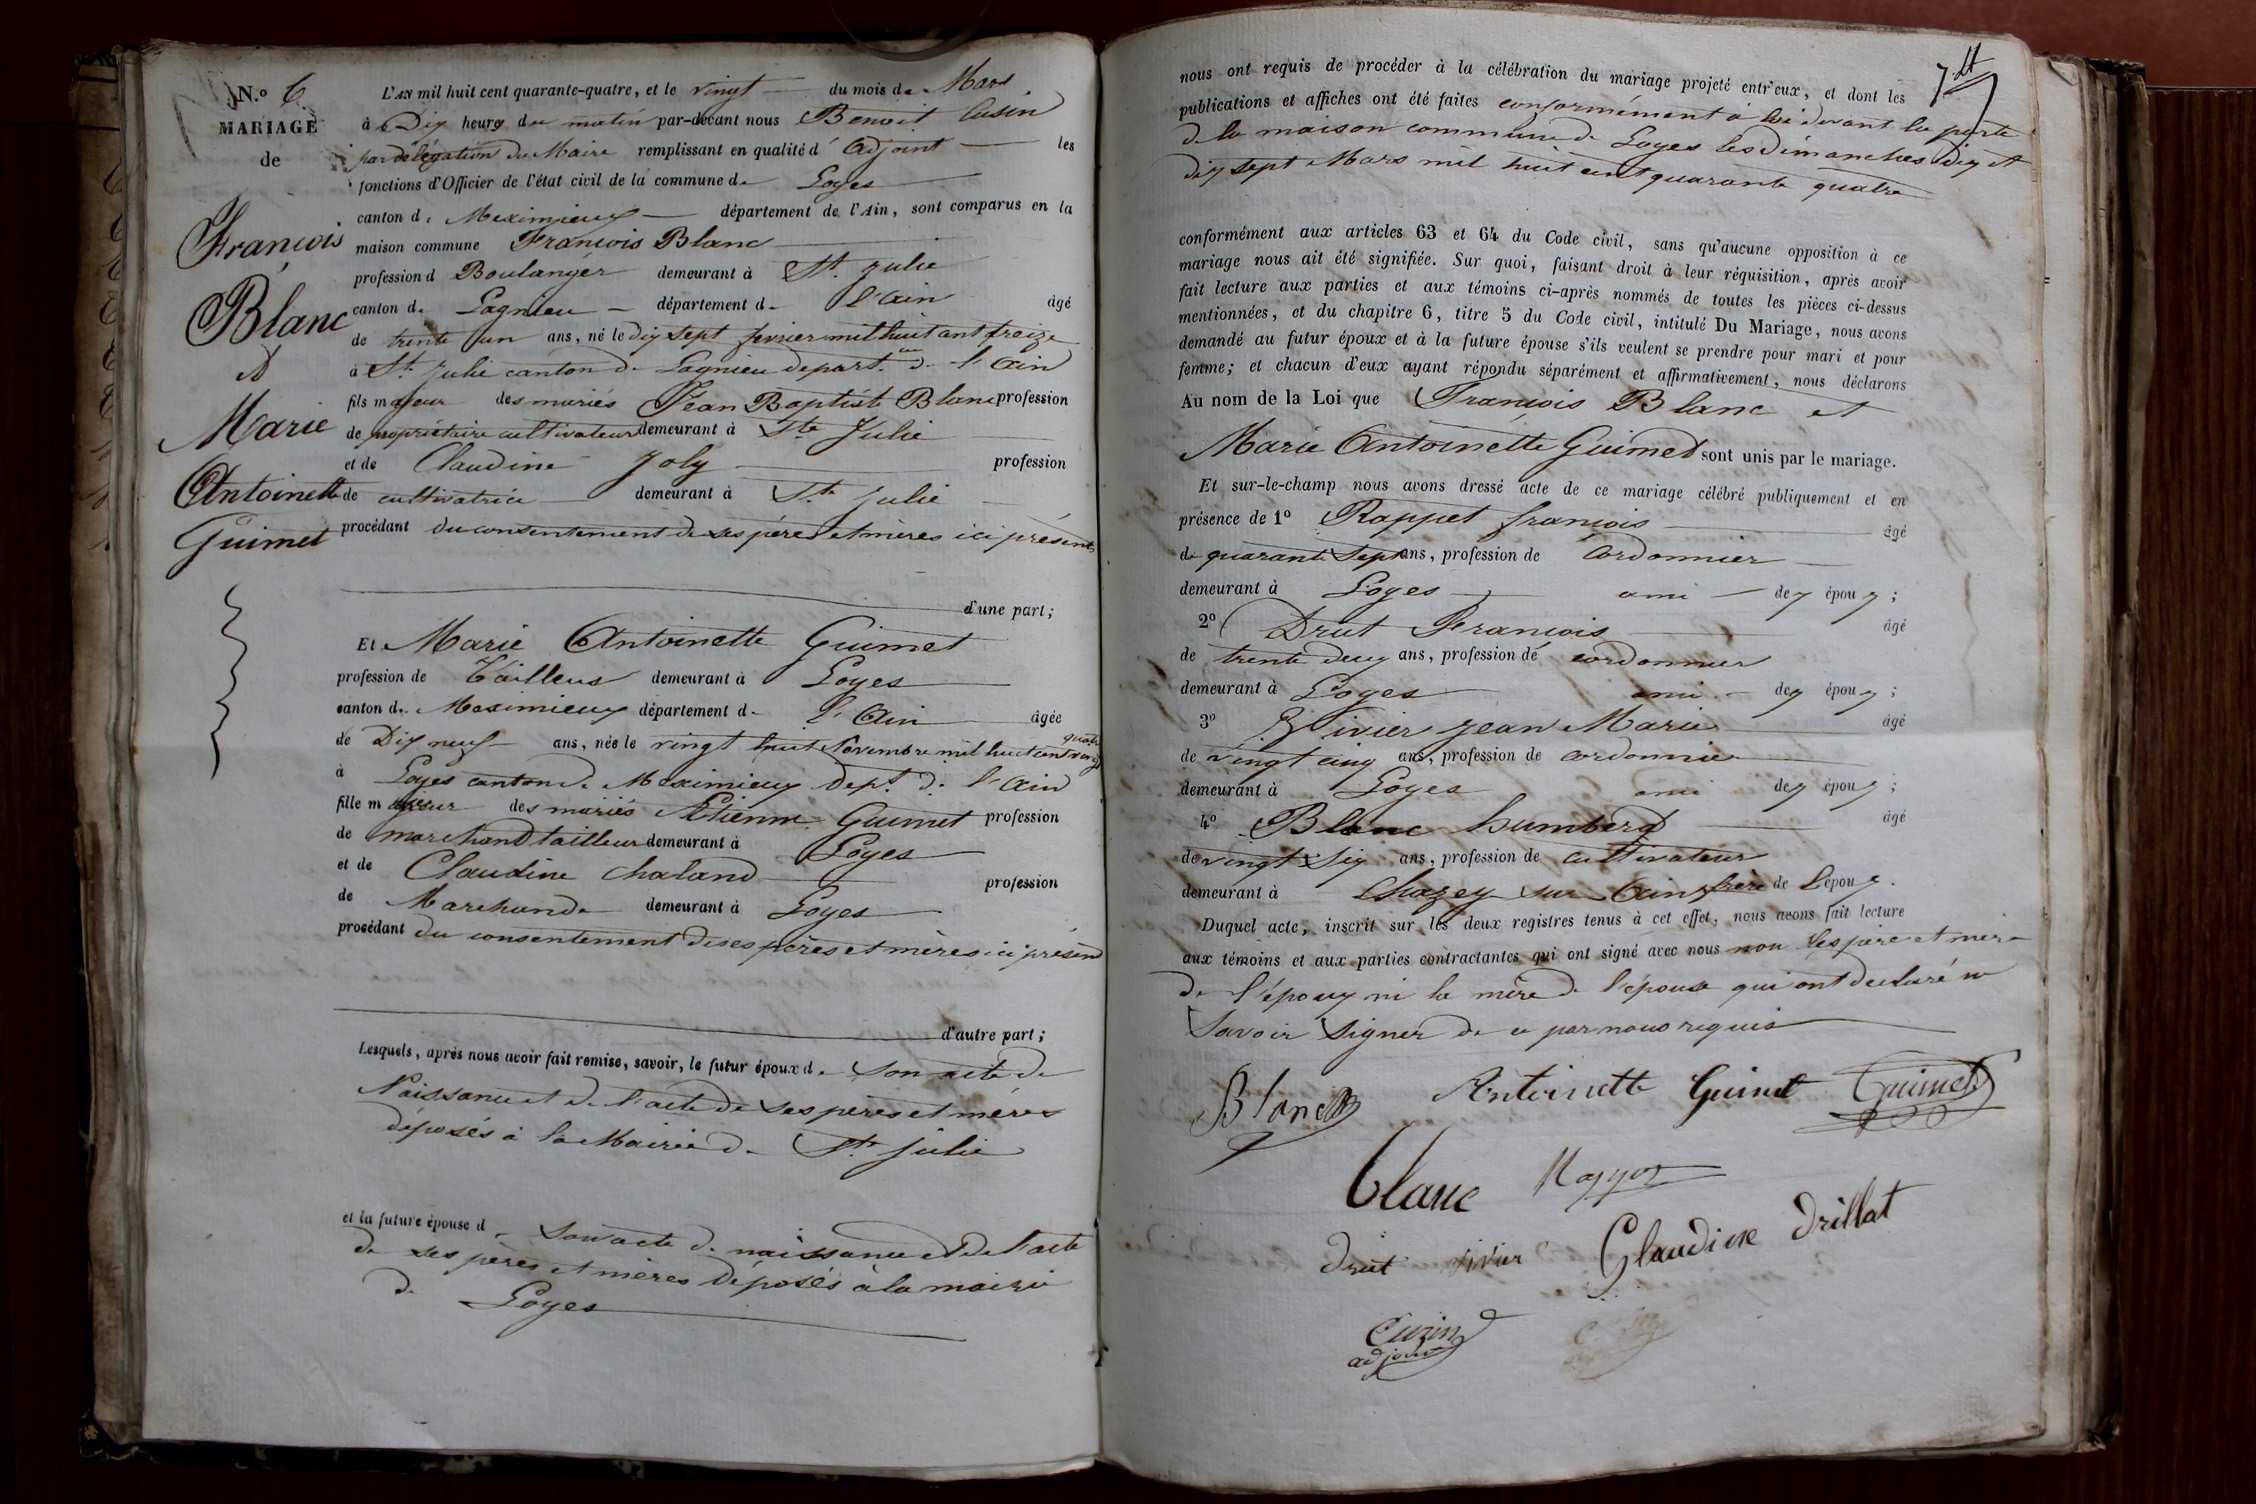 N.º 6
MARIAGE
de
François
Blanc
et
Marie
Antoinette
Guimet
L'AN mil huit cent quarante-quatre, et le vingt du mois de Mars
à Dix heures du matin par-devant nous Benoit Cusin
par délégation du Maire remplissant en qualité d'Adjoint les
fonctions d'Officier de l'état civil de la commune de Loyes
canton de Meximieux département de l'Ain, sont comparus en la
maison commune François Blanc
profession d Boulanger demeurant à Ste Julie
canton de Lagnieu département de l'Ain âgé
de trente un ans, né le dix sept fevrier mil huit cent treize
à Ste Julie canton de Lagnieu depart. de l'Ain
fils majeur des mariés Jean Baptiste Blanc profession
de propriétaire cultivateur demeurant à Ste Julie
et de Claudine Joly profession
de cultivatrice demeurant à Ste Julie
procédant du consentement de ses pères et mères ici présents
d'une part;
Et Marie Antoinette Guimet
profession de Tailleus demeurant à Loyes
canton de Meximieux département de l'Ain âgée
de Dix neuf ans, née le vingt huit Novembre mil huit cent vingt quatre
à Loyes canton de Meximieux Dept. de l'Ain
fille majeur des mariés Etienne Guimet profession
de marchand tailleur demeurant à Loyes
et de Claudine Chaland profession
de Marchande demeurant à Loyes
procédant du consentement de ses pères et mères ici présend
d'autre part;
Lesquels, après nous avoir fait remise, savoir, le futur époux de son acte de
Naissance et de l'acte de ses pères et mères
déposés à la Mairie de Ste Julie
et la future épouse de son acte de naissance et de l'acte
de ses pères et mères déposés à la mairie
de Loyes
nous ont requis de procéder à la célébration du mariage projeté entr'eux, et dont les
publications et affiches ont été faites conformément à loi devant la porte
de la maison commune de Loyes les dimanches dix et
dix sept Mars mil huit cent quarante quatre
conformément aux articles 63 et 64 du Code civil, sans qu'aucune opposition à ce
mariage nous ait été signifiée. Sur quoi, faisant droit à leur réquisition, après avoir
fait lecture aux parties et aux témoins ci-après nommés de toutes les pièces ci-dessus
mentionnées, et du chapitre 6, titre 5 du Code civil, intitulé Du Mariage, nous avons
demandé au futur époux et à la future épouse s'ils veulent se prendre pour mari et pour
femme; et chacun d'eux ayant répondu séparément et affirmativement, nous déclarons
Au nom de la Loi que François Blanc et
Marie Antoinette Guimet sont unis par le mariage.
Et sur-le-champ nous avons dressé acte de ce mariage célébré publiquement et en
présence de 1º Rappet françois âgé
de quarante sept ans, profession de Cordonnier
demeurant à Loyes ami dex époux;
2º Drut François âgé
de trente deux ans, profession de cordonnier
demeurant à Loyes ami dex époux;
3º Vivier Jean Marie âgé
de vingt cinq ans, profession de cordonnier
demeurant à Loyes ami dex époux;
4º Blanc humberd âgé
de vingt six ans, profession de cultivateur
demeurant à Chazey sur Ain frère de l'époux.
Duquel acte, inscrit sur les deux registres tenus à cet effet, nous avons fait lecture
aux témoins et aux parties contractantes qui ont signé avec nous non les père et mère
de l'époux ni la mère de l'épouse qui ont declaré ne
savoir signer de ce par nous requis
Blanc Antoinette Guimet Guimet
blanc
drut vivier Claudine drillat
Cuzin
adjoint